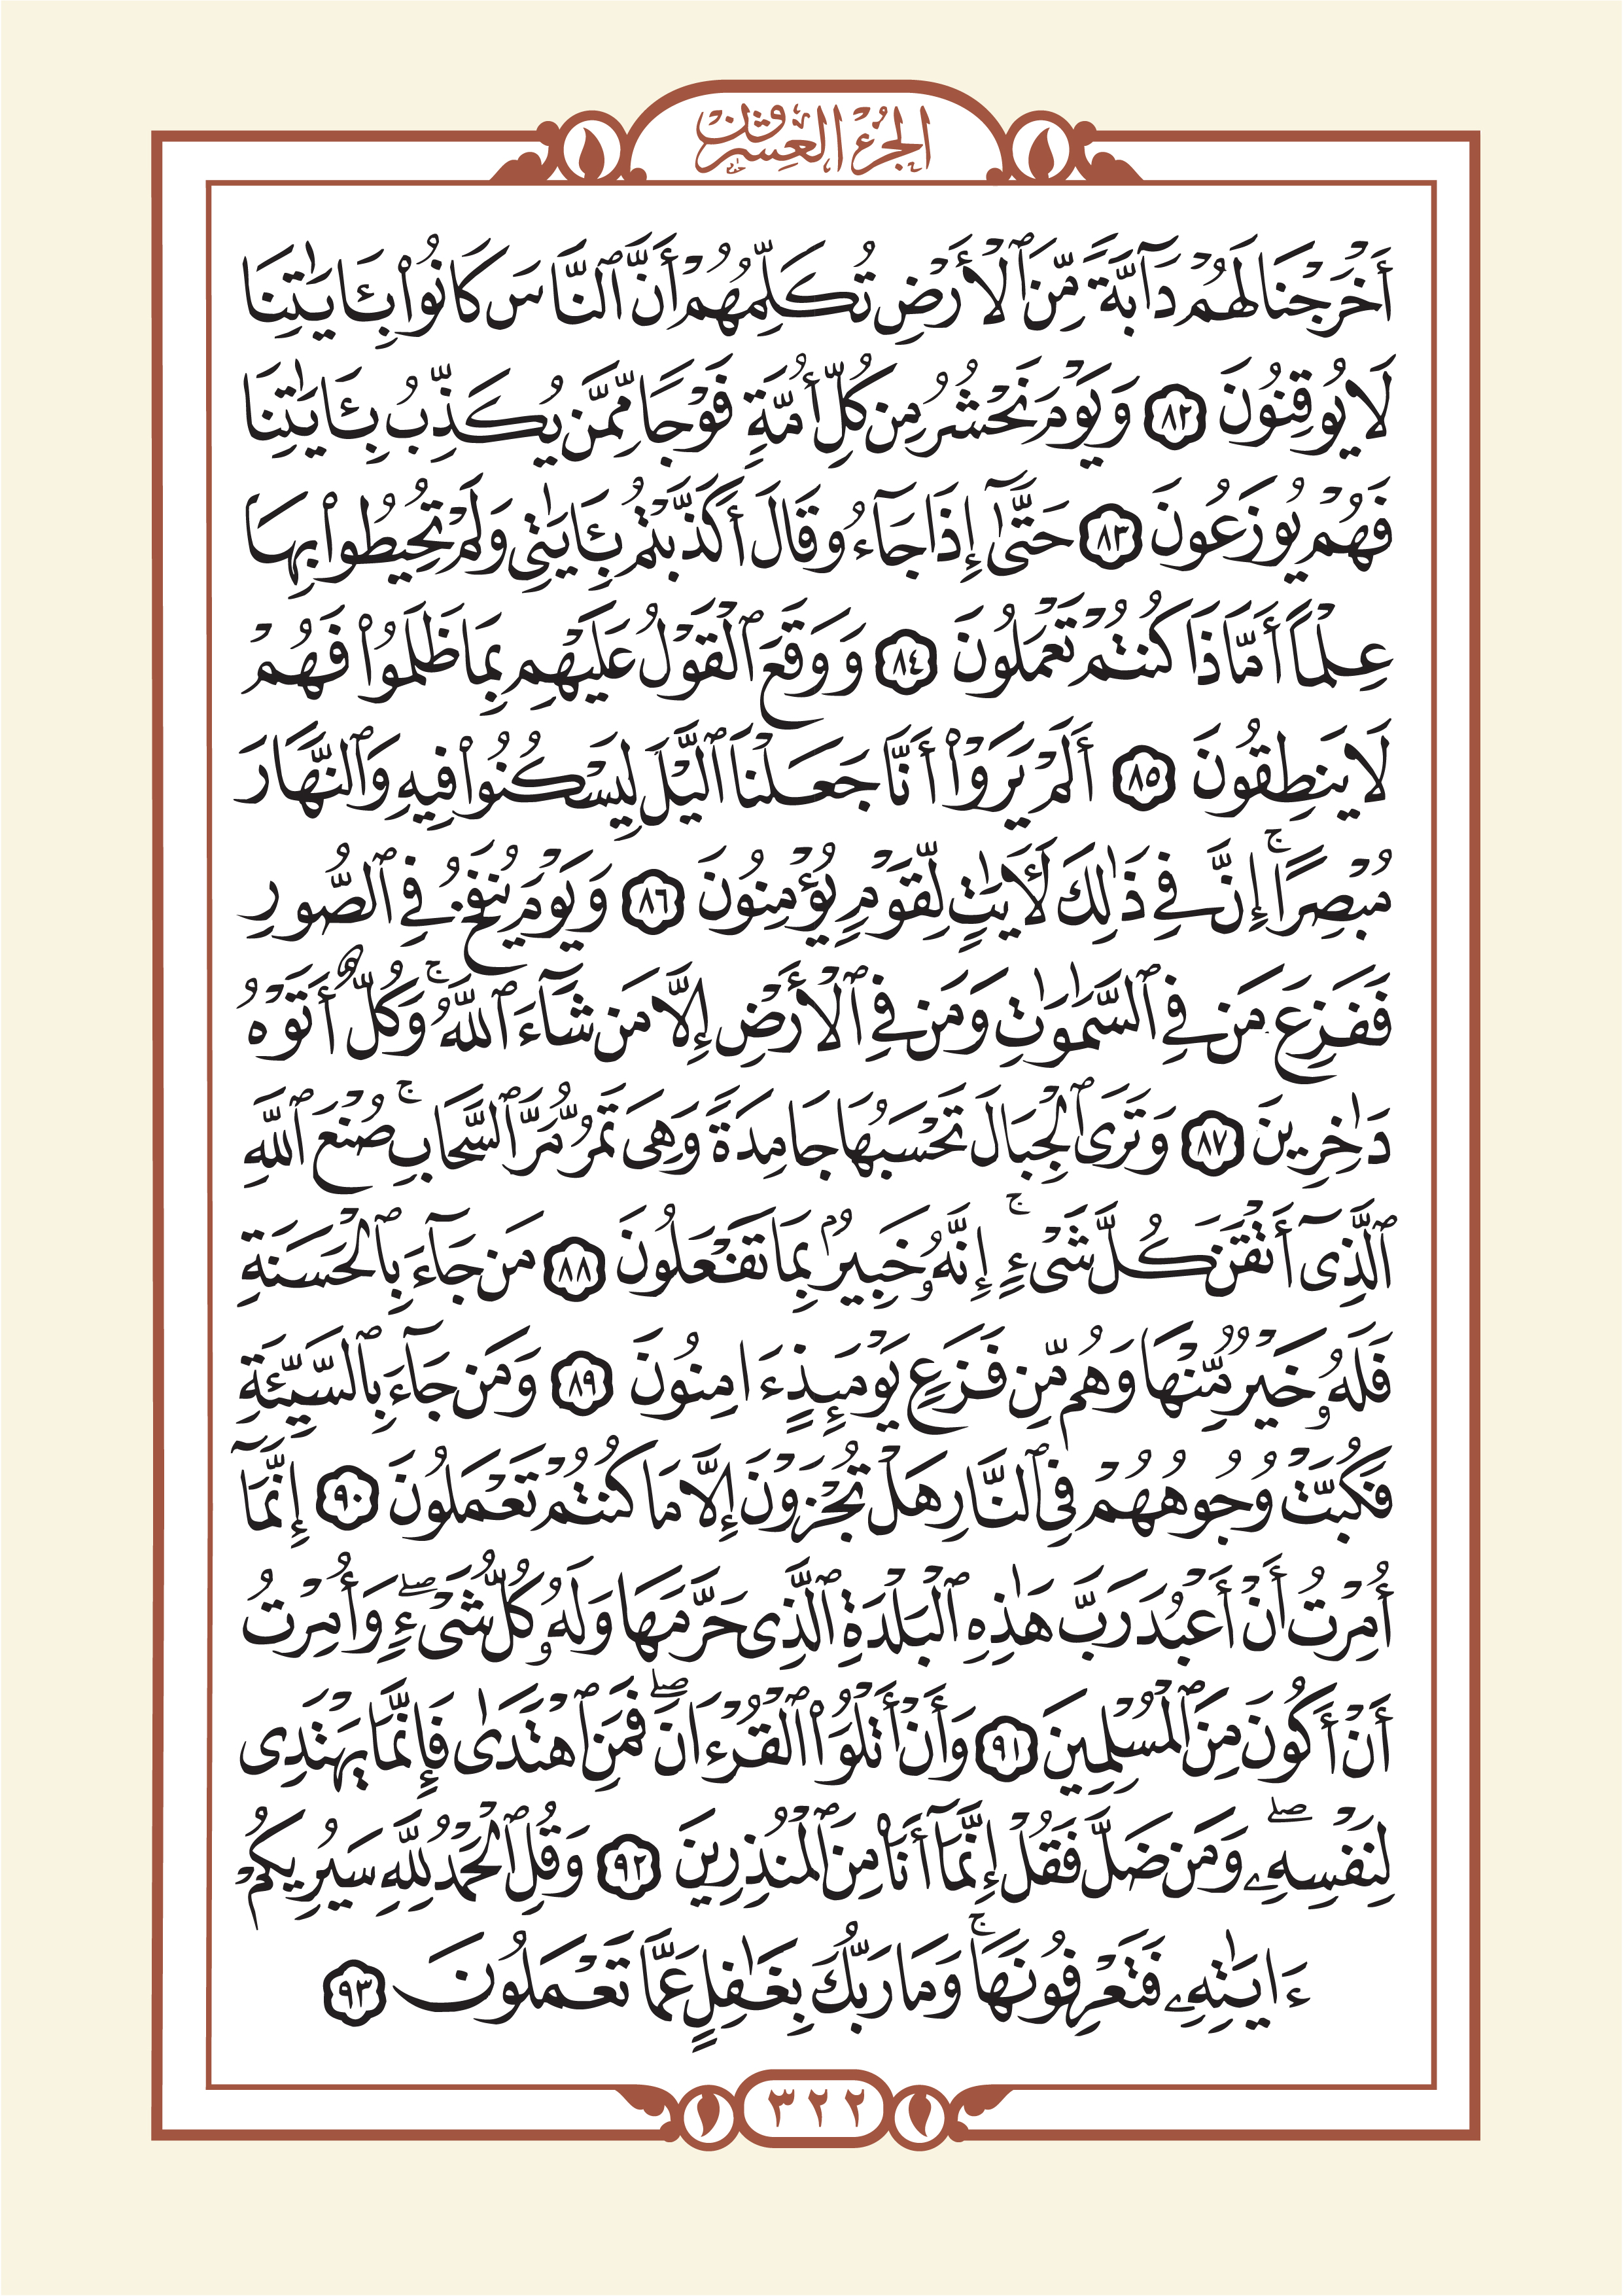 الجزء العشرون
أَخْرَجْنَا لَهُمْ دَآبَّةً مِّنَ ٱلْأَرْضِ تُكَلِّمُهُمْ أَنَّ ٱلنَّاسَ كَانُوا۟ بِـَٔايَـٰتِنَا
لَا يُوقِنُونَ ٨٢ وَيَوْمَ نَحْشُرُ مِن كُلِّ أُمَّةٍ فَوْجًا مِّمَّن يُكَذِّبُ بِـَٔايَـٰتِنَا
فَهُمْ يُوزَعُونَ ٨٣ حَتَّىٰٓ إِذَا جَآءُو قَالَ أَكَذَّبْتُم بِـَٔايَـٰتِى وَلَمْ تُحِيطُوا۟ بِهَا
عِلْمًا أَمَّاذَا كُنتُمْ تَعْمَلُونَ ٨٤ وَوَقَعَ ٱلْقَوْلُ عَلَيْهِم بِمَا ظَلَمُوا۟ فَهُمْ
لَا يَنطِقُونَ ٨٥ أَلَمْ يَرَوْا۟ أَنَّا جَعَلْنَا ٱلَّيْلَ لِيَسْكُنُوا۟ فِيهِ وَٱلنَّهَارَ
مُبْصِرًا ۚ إِنَّ فِى ذَٰلِكَ لَـَٔايَـٰتٍ لِّقَوْمٍ يُؤْمِنُونَ ٨٦ وَيَوْمَ يُنفَخُ فِى ٱلصُّورِ
فَفَزِعَ مَن فِى ٱلسَّمَـٰوَٰتِ وَمَن فِى ٱلْأَرْضِ إِلَّا مَن شَآءَ ٱللَّهُ ۚ وَكُلٌّ أَتَوْهُ
دَٰخِرِينَ ٨٧ وَتَرَى ٱلْجِبَالَ تَحْسَبُهَا جَامِدَةً وَهِىَ تَمُرُّ مَرَّ ٱلسَّحَابِ ۚ صُنْعَ ٱللَّهِ
ٱلَّذِىٓ أَتْقَنَ كُلَّ شَىْءٍ ۚ إِنَّهُۥ خَبِيرٌۢ بِمَا تَفْعَلُونَ ٨٨ مَن جَآءَ بِٱلْحَسَنَةِ
فَلَهُۥ خَيْرٌ مِّنْهَا وَهُم مِّن فَزَعٍ يَوْمَئِذٍ ءَامِنُونَ ٨٩ وَمَن جَآءَ بِٱلسَّيِّئَةِ
فَكُبَّتْ وُجُوهُهُمْ فِى ٱلنَّارِ هَلْ تُجْزَوْنَ إِلَّا مَا كُنتُمْ تَعْمَلُونَ ٩٠ إِنَّمَآ
أُمِرْتُ أَنْ أَعْبُدَ رَبَّ هَـٰذِهِ ٱلْبَلْدَةِ ٱلَّذِى حَرَّمَهَا وَلَهُۥ كُلُّ شَىْءٍ ۖ وَأُمِرْتُ
أَنْ أَكُونَ مِنَ ٱلْمُسْلِمِينَ ٩١ وَأَنْ أَتْلُوَا۟ ٱلْقُرْءَانَ ۖ فَمَنِ ٱهْتَدَىٰ فَإِنَّمَا يَهْتَدِى
لِنَفْسِهِۦ ۖ وَمَن ضَلَّ فَقُلْ إِنَّمَآ أَنَا۠ مِنَ ٱلْمُنذِرِينَ ٩٢ وَقُلِ ٱلْحَمْدُ لِلَّهِ سَيُرِيكُمْ
ءَايَـٰتِهِۦ فَتَعْرِفُونَهَا ۚ وَمَا رَبُّكَ بِغَـٰفِلٍ عَمَّا تَعْمَلُونَ ٩٣
٣٢٢